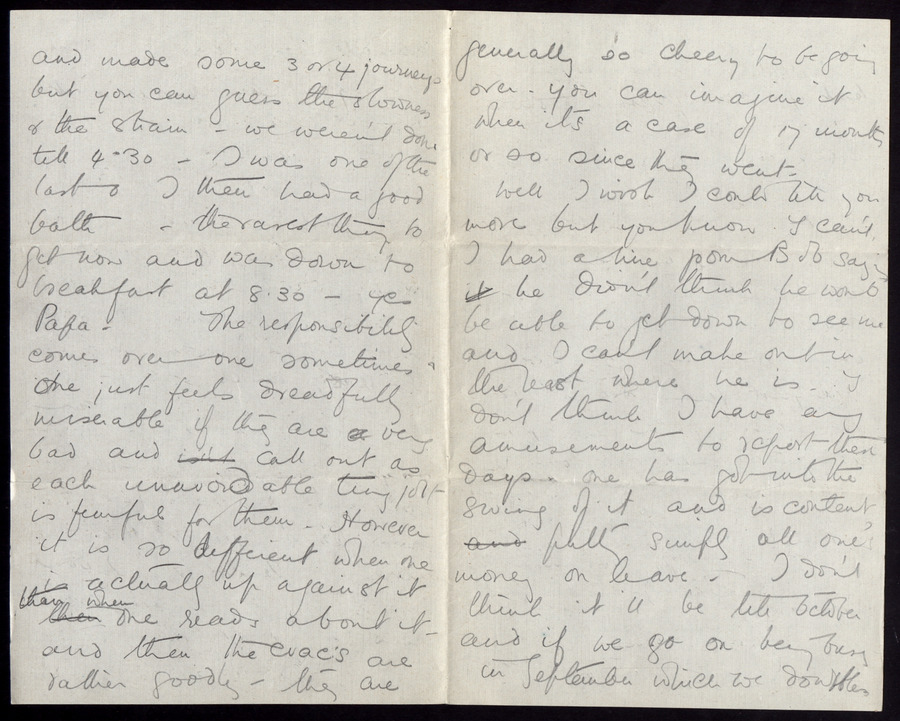 and made some 3 or 4 journeys
but you can guess the slowness
& the strain - we weren't done
till 4-30 - I was one of the
last & I then had a good
bath - the rarest thing to
get now and was down to
breakfast at 8.30 - yes
Papa - The responsibility
comes over one sometimes &
One just feels dreadfully
miserable if they are a very
bad and isnt call out as
each unavoidable tiny jolt
is fearful for them. However
it is so different when one
is actually up against it
than when
then one reads about it -
and then the evac's are
rather goodly - they are
generally so cheery to be going
over - you can imagine it
when it's a case of 17 months
or so since they went -
Well I wish I could tell you
more but you know I can't.
I had a line from Bob saying
it he didn't think he would
be able to get down to see me
and I can't make out in
the least where he is. I
don't think I have any
amusements to report these
days - one has got into the
swing of it and is content
and putty simply all one's
money on leave - I don't
think it'll be till October
and if we go on being busy
in September which we doubtless